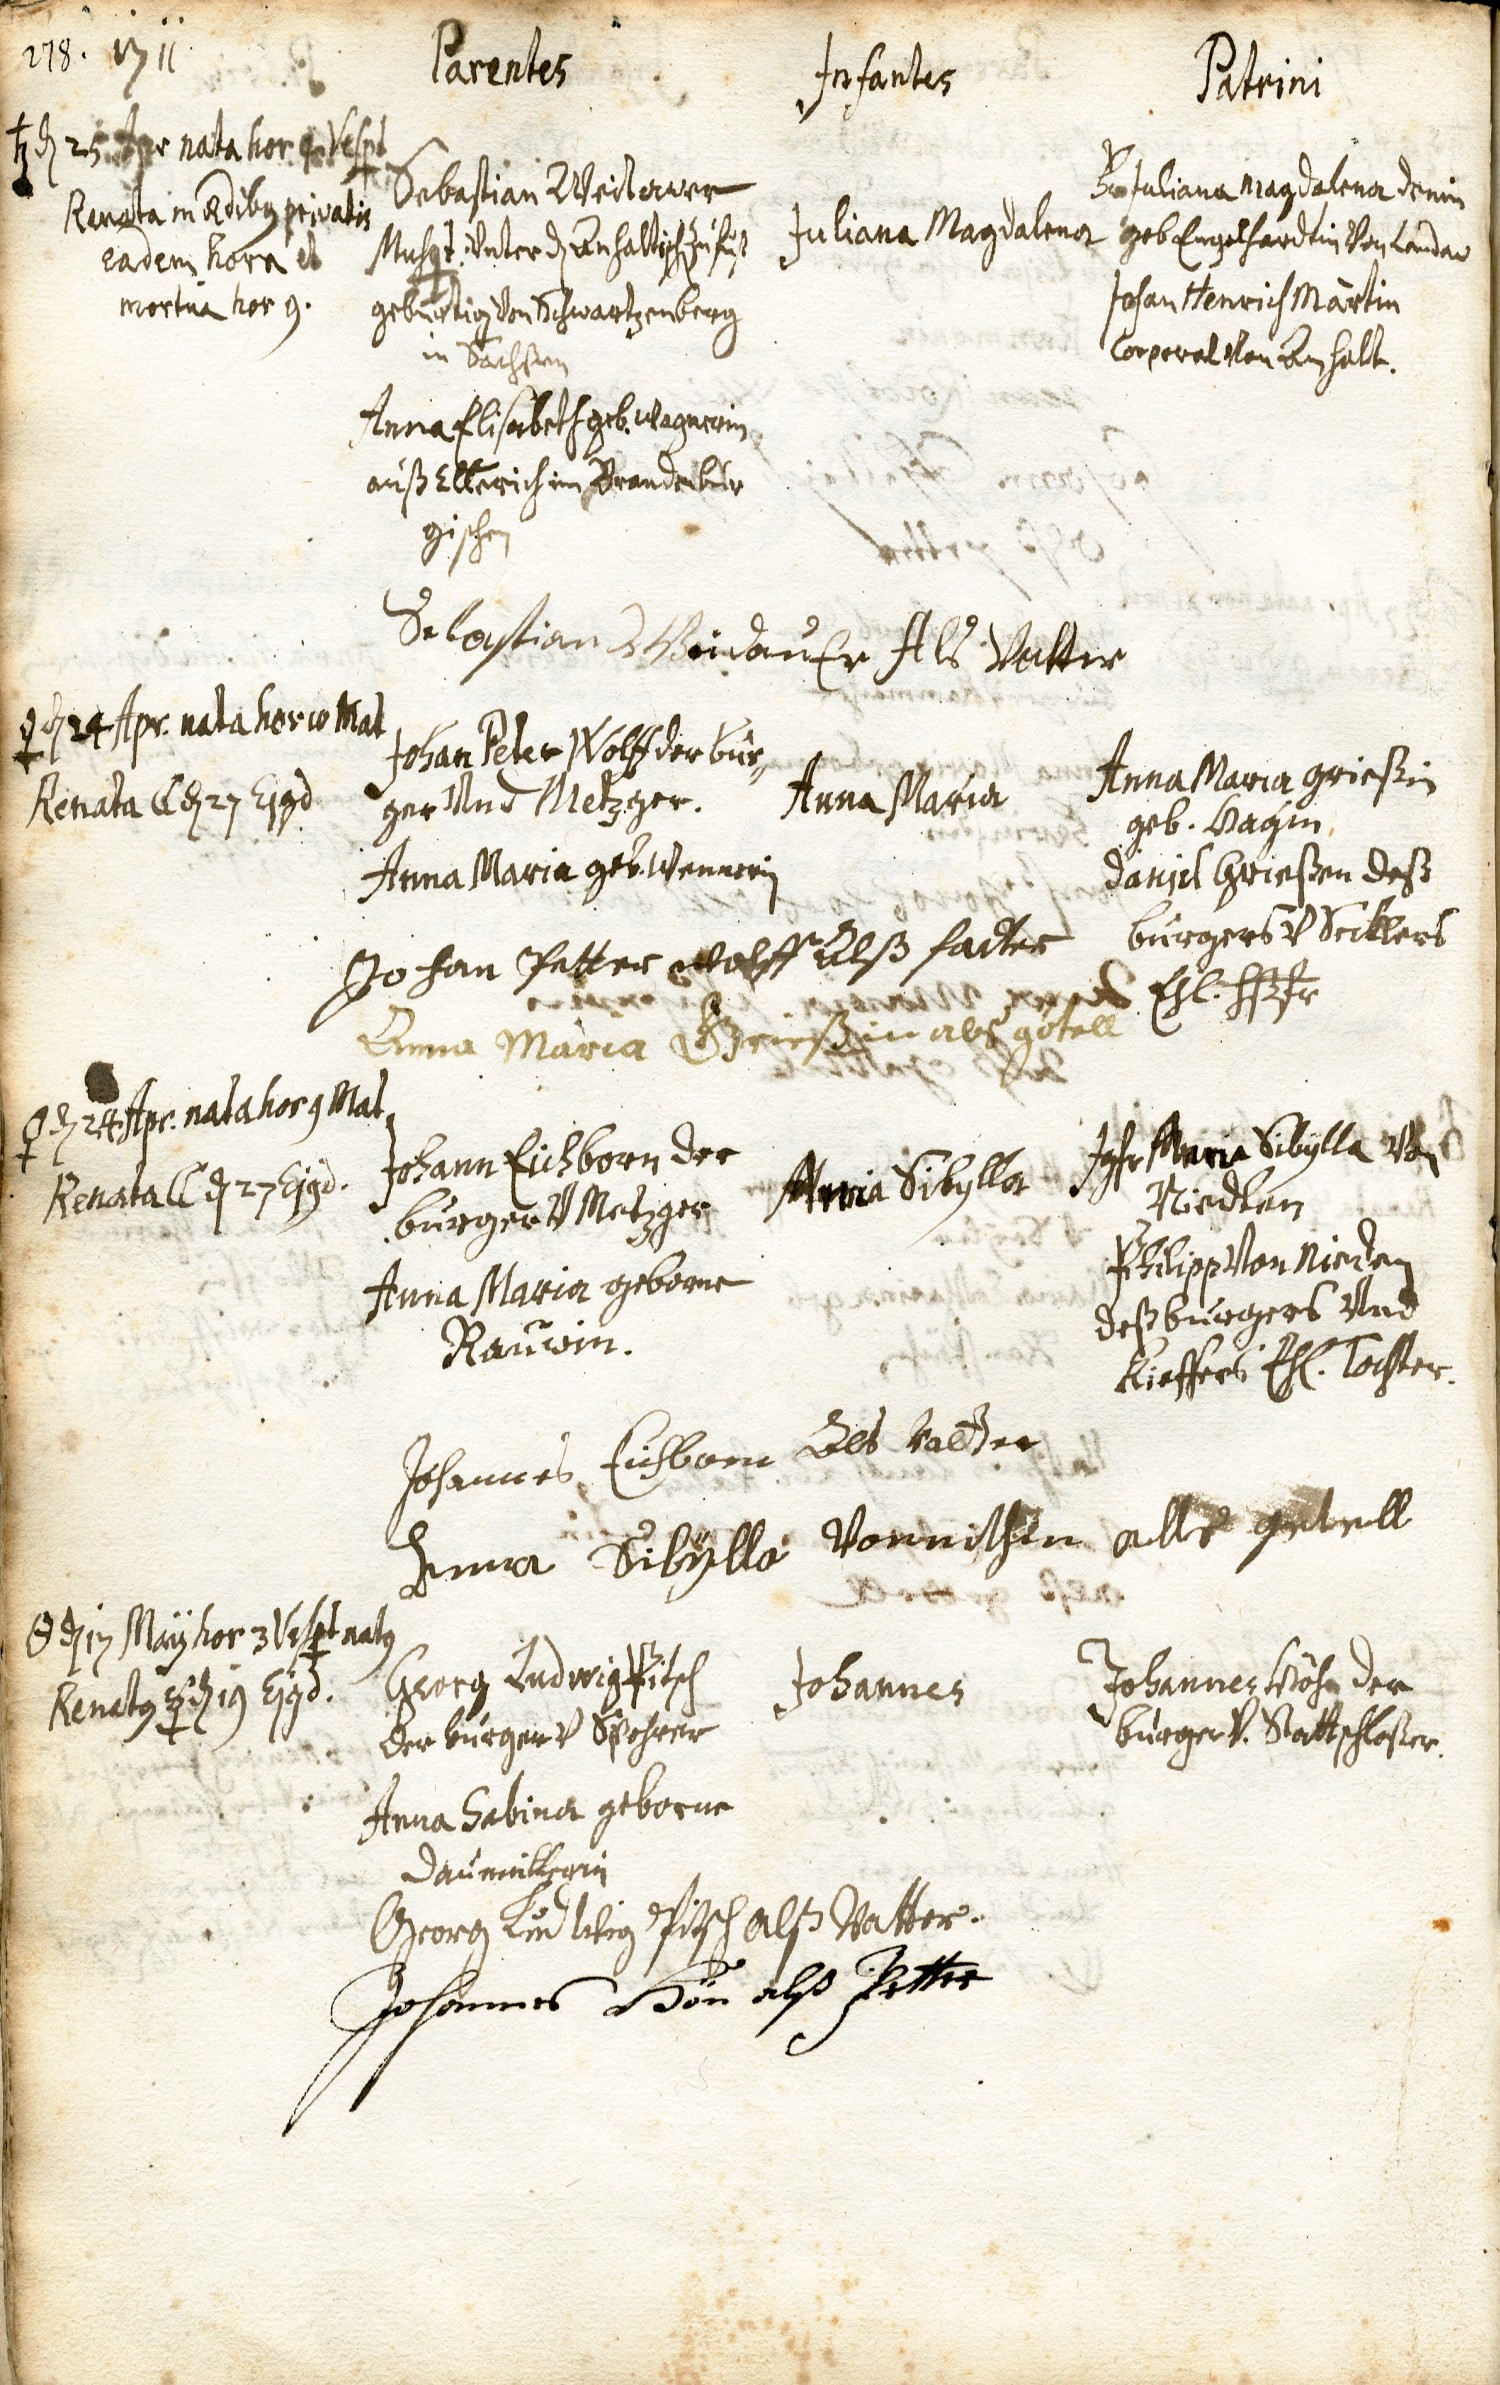 278. 1711
Parentes Infantes Patrini
♄ d 25 Apr nata hor 9 Vesp
Renata in Ædibus privatis
eadem hora et
mortua hor 9.
Sebastian Weidawer
Musqt. Unter d Anhaltisch zu fuß
gebürtig Von Schwartzenberg
in Sachsen
Anna Elisabeth geb. Wagnerin
auß Ellerich im Brandenbur
gischen
Juliana Magdalena
Juliana Magdalena
geb Engelhardtin Von Landau
Johan Henrich Martin
Corporal Von Anhalt.
Sebastian WeidauEr Als Vatter
♀ d 24 Apr. nata hor 10 Mat
Renata ☾ d 27 Ejgd
Johan Peter Wolff der bür„
ger Und Metzger.
Anna Maria geb. Wennerin
Anna Maria
Anna Maria Grießin
geb.
Daniel Grießen deß
burgers V Seitlers
Ehl.
Johan Petter Wolff Alß fadter
Anna Maria Grießin als götell
♀ d 24 Apr. nata hor 9 Mat
Renata ☾ d 27 Ejgd.
Johann Eichborn der
burger V Metzger
Anna Maria geborne
Rauwin.
Maria Sibylla
Jgfr Maria Sibylla Von
Niedten
Philipp Von Nieden
deß burgers Und
Kieffers Ehl. Tochter.
Johannes Eichborn Als Vadter
Anna Sibÿlla Vonnithen alls getell
d 17 Maij hor 3 Vesp. natg
Renatg d 19 Ejgd.
Georg Ludwig Pitsch
der burger V Spohrer
Anna Sabina geborne
Daumillerin
Johannes
Johannes Höhn der
burger V. Stattschloßer.
Georg Ludwig Pitsch alß Vatter.
Johannes Hön alß Petter